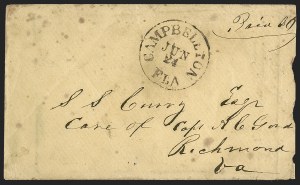 CAMPBELLTON
JUN
24
FLA
Paid
S S Curry Esqr
Care of Capt A C Gord
Richmond
Va